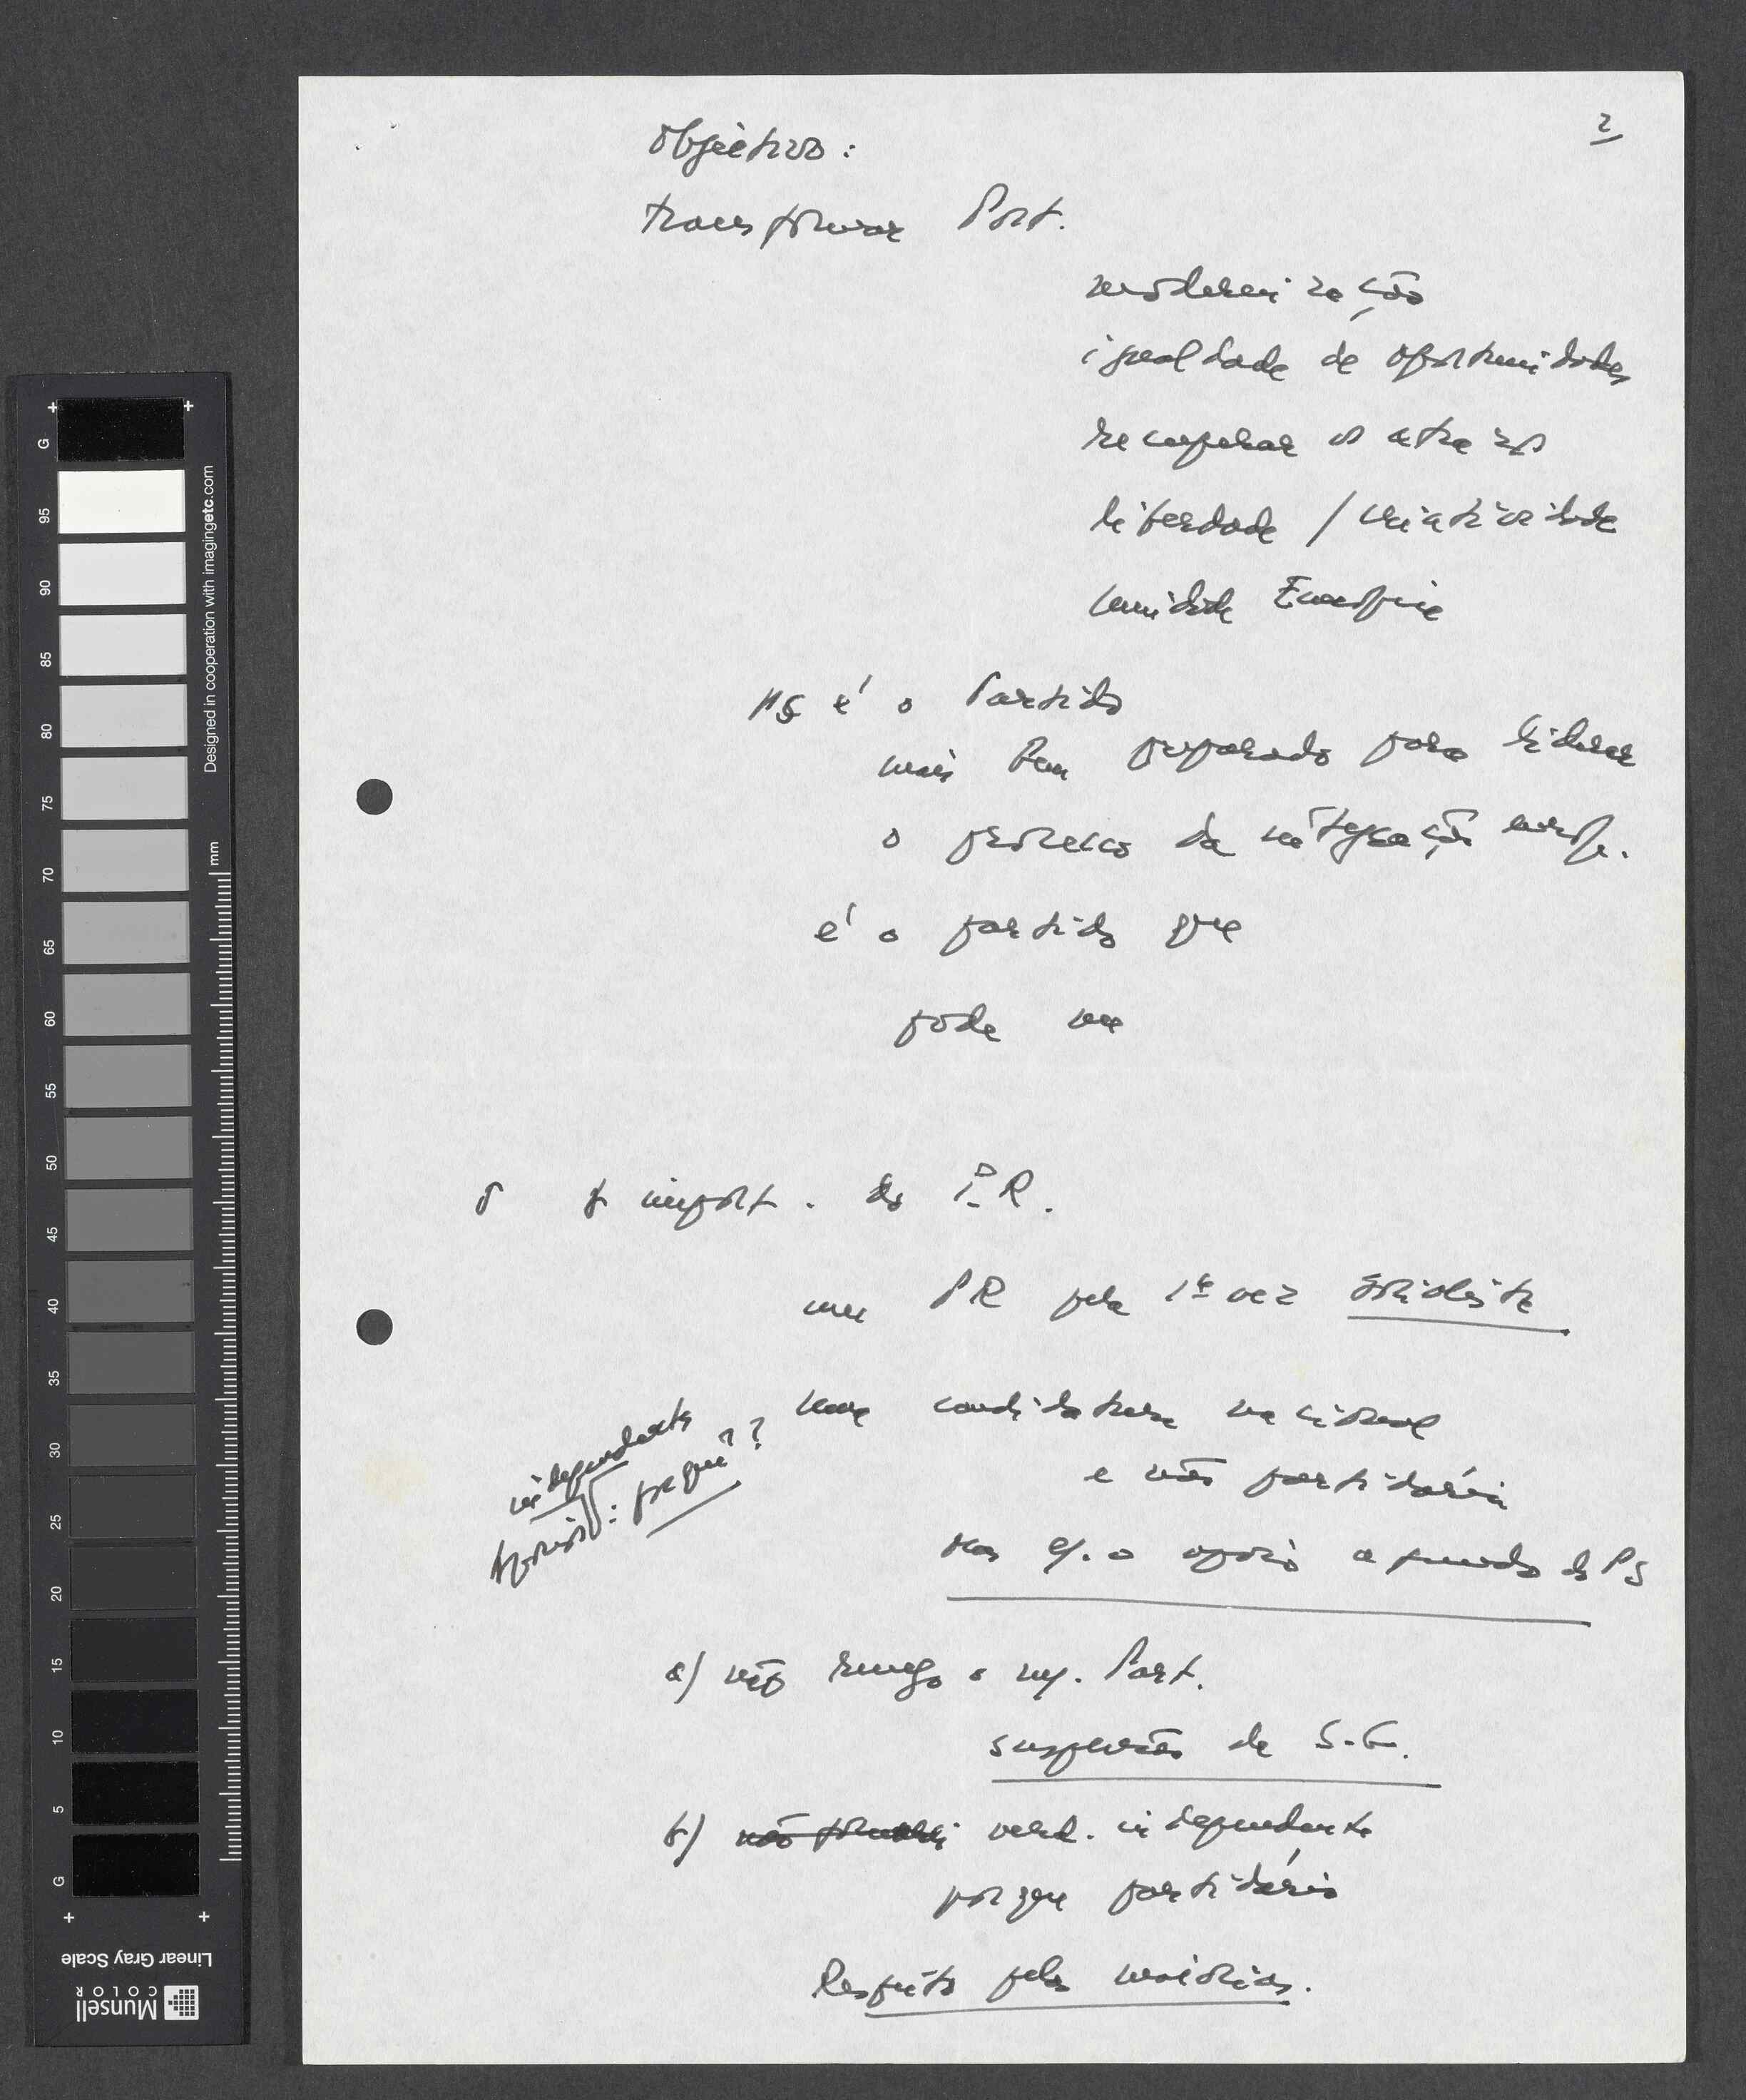 2
Objectivo:
transformar Port.
modernização
igualdade de oportunidades
recuperar os atrasos
liberdade / criatividade
unidade Europeia
PS é o Partido
mais bem preparado para liderar
o processo da integração europ.
é o partido que
pode
a import. do P.R.
um PR pela 1ª vez
uma candidatura nacional
e não partidária
independente
apoio: porquê??
mas c/ o apoio a fundo do PS
a) não renego o m/. Part.
suspensão de S.G.
b) verd. independente
porque partidário
Respeito pelas maiorias.
G
95
90
85
80
75
70
65
60
55
50
45
40
35
30
25
20
15
10
5
G
mm
Designed in cooperation with imagingetc.com
Linear Gray Scale
Munsell
COLOR